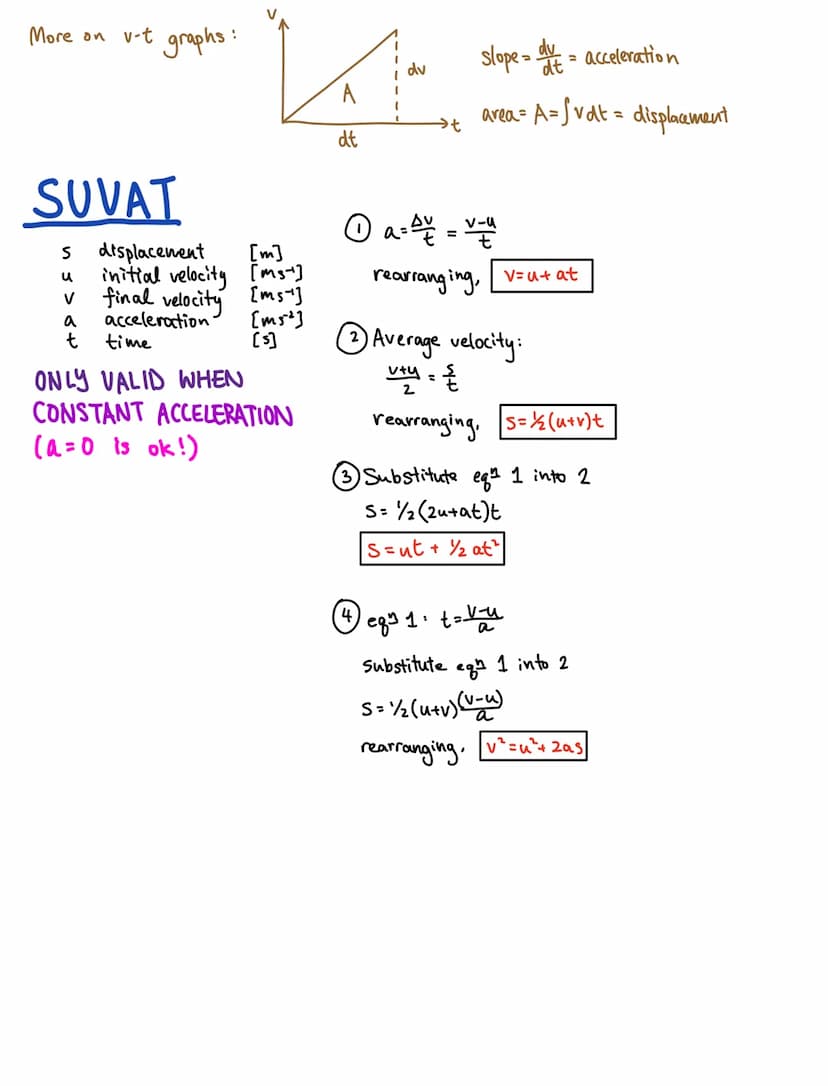 More on v-t graphs:
v
dv
A
t
dt
slope = dv/dt = acceleration
area = A = ∫vdt = displacement
SUVAT
s displacement [m]
u initial velocity [ms⁻¹]
v final velocity [ms⁻¹]
a acceleration [ms⁻²]
t time [s]
ONLY VALID WHEN
CONSTANT ACCELERATION
(a=0 is ok!)
① a = Δv/t = v-u/t
rearranging, v=u+at
② Average velocity:
v+u/2 = s/t
rearranging, s=½(u+v)t
③ Substitute eqⁿ 1 into 2
s= ½(2u+at)t
s=ut + ½ at²
④ eqⁿ 1: t=v-u/a
substitute eqⁿ 1 into 2
s= ½(u+v)(v-u)/a
rearranging, v²=u²+2as